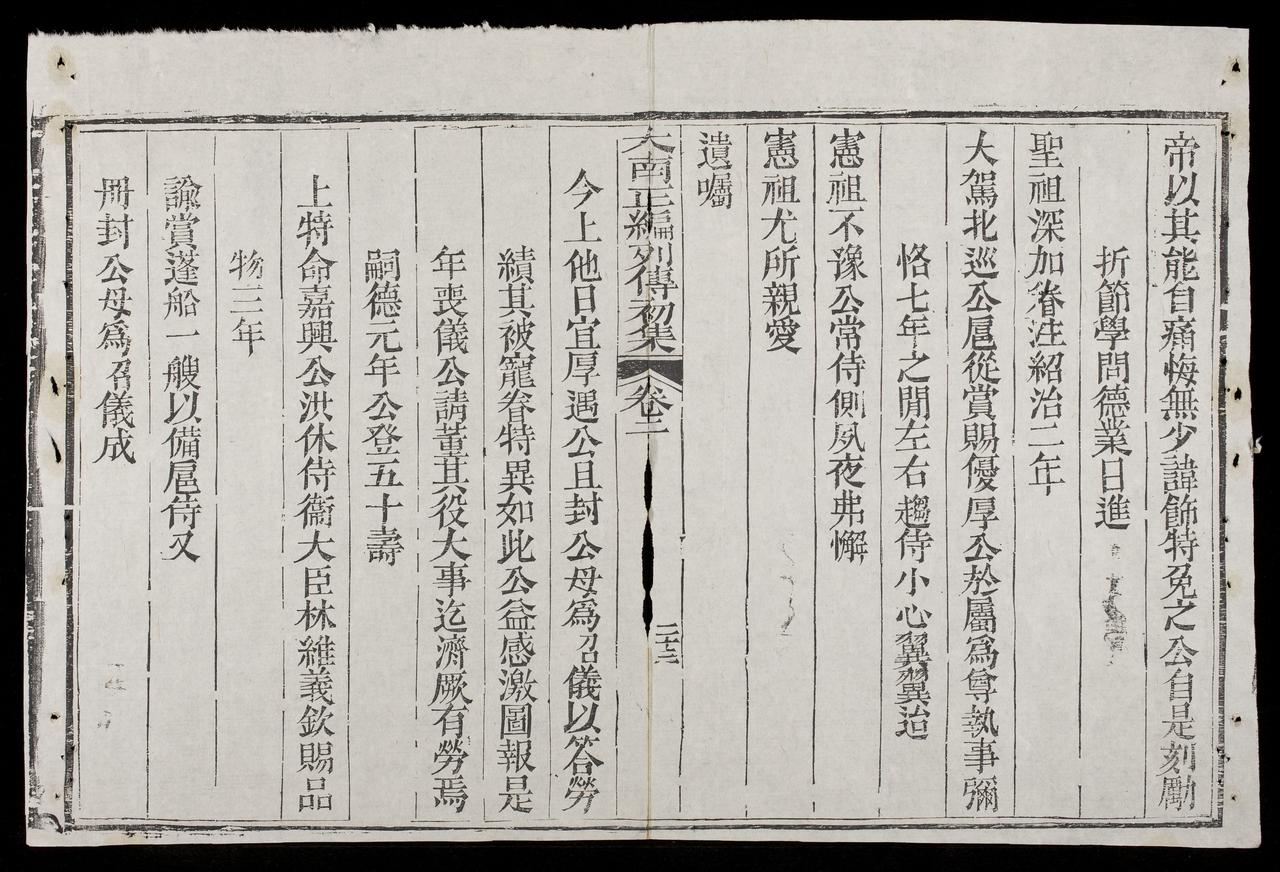 帝以其能自痛悔無少諱飾特免之公自是刻勵
折節學問德業日進
聖祖深加眷注紹治二年
大駕北巡公扈從賞賜優厚公於屬爲尊執事彌
恪七年之閒左右趨侍小心翼翼迨
憲祖不豫公常侍側夙夜弗懈
憲祖尤所親愛
遺囑
大南正編列傳初集 卷二 二十六
今上他日宜厚遇公且封公母爲召儀以答勞
績其被寵眷特異如此公益感激圖報是
年喪儀公請董其役大事迄濟厥有勞焉
嗣德元年公登五十壽
上特命嘉興公洪休侍衞大臣林維義欽賜品
物三年
諭賞蓬船一艘以備扈侍又
冊封公母爲召儀成